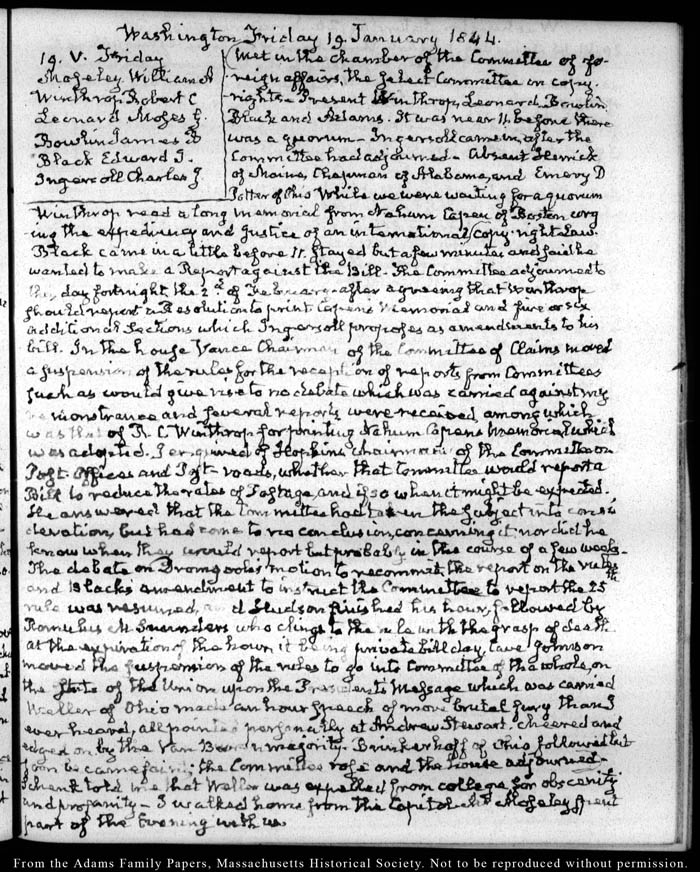 Washington Friday 19. January 1844.
19. V. Friday
Moseley William A
Winthrop Robert C
Leonard Moses G.
Bowlin James B
Black Edward J.
Ingersoll Charles J.
Met in the chamber of the Committee of fo-
reign affairs, the Select Committee on copy-
rights – Present Winthrop, Leonard, Bowlin,
Black and Adams. It was near 11. before there
was a quorum – Ingersoll came in, after the
Committee had adjourned – Absent Herrick
of Maine, Chapman of Alabama, and Emery D
Potter of Ohio While we were waiting for a quorum
Winthrop read a long memorial from Nahum Capen of Boston urg
ing the expediency and justice of an international Copy-right Law.
Black came in a little before 11. stayed but a few minutes and said he
wanted to make a Report against the Bill. The Committee adjourned to
this day fortnight, the 2d of February – after agreeing that Winthrop
should report a Resolution to print Capen's Memorial and five or six
additional Sections which Ingersoll proposes as amendments to his
bill. In the house Vance Chairman of the Committee of Claims moved
a suspension of the rules for the reception of reports from Committees
such as would give rise to no debate which was carried against my
remonstrance and several reports were received among which
was that of R. C Winthrop for printing Nahum Capen's Memorial which
was adopted. I enquired of Hopkins chairman of the Committee on
Post-Offices and Post-roads, whether that Committee would report a
Bill to reduce the rates of Postage, and if so when it might be expected.
He answered that the Committee had taken the subject into consi
deration, but had come to no conclusion, concerning it; nor did he
know when they would report but probably in the course of a few weeks –
The debate on Dromgoole's motion to recommit, the report on the rules
and Black's amendment to instruct the Committee to report the 25th
rule was resumed, and Hudson finished his hour, followed by
Romulus M Saunders who clings to the rule with the grasp of death
at the expiration of the hour, it being private bill day, Cave Johnson
moved the suspension of the rules to go into Committee of the whole, on
the State of the Union upon the President's Message which was carried
Weller of Ohio made an hour speech of more brutal fury than I
ever heard, all pointed personally at Andrew Stewart, cheered and
edged on by the Van Buren majority. Brinkerhoff of Ohio followed but
soon became faint; the Committee rose and the house adjourned –
Schenk told me that Weller was expelled from college for obscenity
and profanity – I walked home from the Capitol Mr Moseley spent
part of the Evening with us.
From the Adams Family Papers, Massachusetts Historical Society. Not to be reproduced without permission.